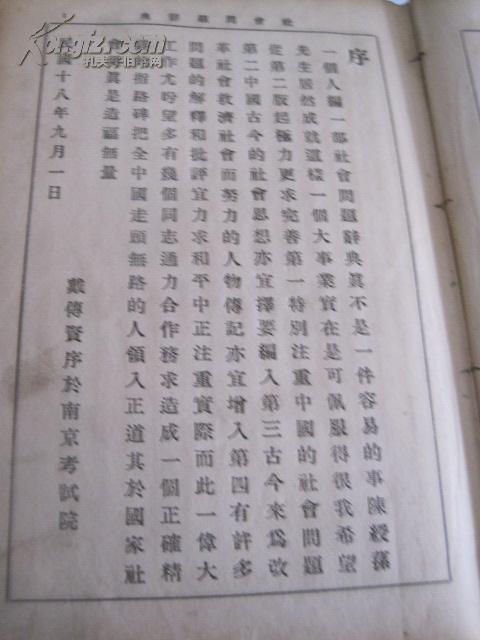 社會問題辭典
序
一個人編一部社會問題辭典眞不是一件容易的事陳綬蓀
先生居然成就這樣一個大事業實在是可佩服得很我希望
從第二版起極力更求完善第一特別注重中國的社會問題
第二中國古今的社會思想亦宜擇要編入第三古今來爲改
革社會救濟社會而努力的人物傳記亦宜增入第四有許多
問題的解釋和批評宜力求和平中正注重實際而此一偉大
工作尤盼望多有幾個同志通力合作務求造成一個正確精
指路碑把全中國走頭無路的人領入正道其於國家社
會眞是造福無量
民國十八年九月一日
戴傳賢序於南京考試院
Kongfz.com
孔夫子旧书网